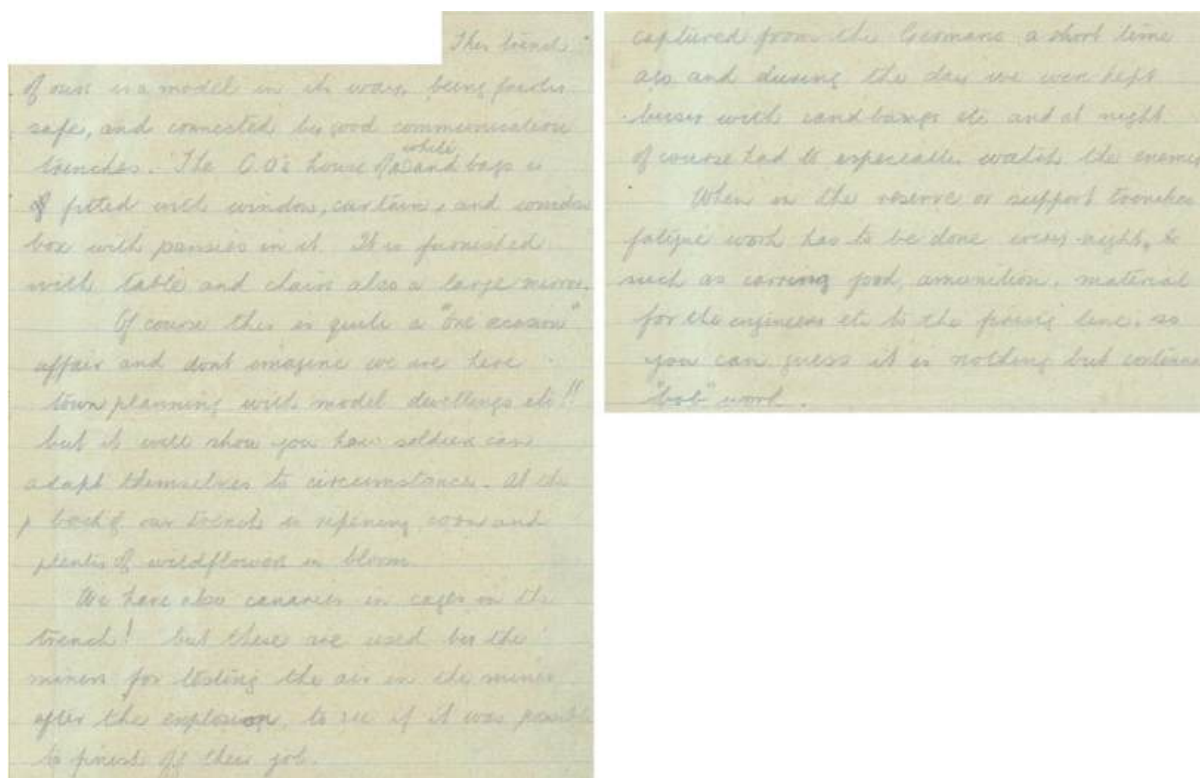 This trench
of ours is a model in its way, being fairly
safe, and connected by good communication
trenches. The C.O's house of white sand bags is
fitted with window, curtain, and window
box with pansies in it. It is furnished
with table and chairs also a large mirror.
Of course this is quite a "one
affair and dont imagine we are here
town planning with model dwellings etc!!
but it will show you how soldiers can
adapt themselves to circumstance. At the
back of our trench is ripening corn and
plenty of wildflowers in bloom.
We have also canaries in cages in the
trench! but these are used by the
miners for testing the air in the mines
after the explosion, to see if it was possible
to finish off their job.
captured from the Germans a short time
ago and during the day we were kept
busy with sand bangs etc and at night
of course had to especially watch the enemy
When in the reserve or support trenches
fatigue work has to be done every night,
such as carring food, amunition, material
for the engineers etc to the firing line. so
you can guess it is nothing but
work.